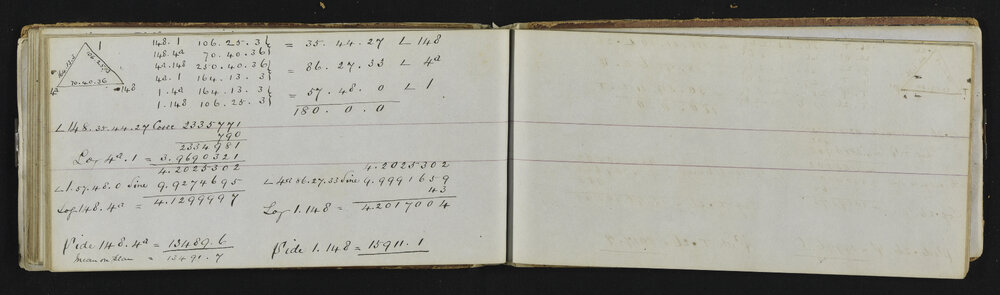 1
70.40.36
4a 148
148.1 106.25.3 } = 35.44.27 L 148
148.4a 70.40.36 }
4a.148 250.40.36 } = 86.27.33 L 4a
4a.1 164.13.3 }
1.4a 164.13.3 } = 57.48.0 L 1
1.148 106.25.3 }
180.0.0
L 148.35.44.27 Cosec 2335771
790
2334981
Log 4a.1 = 3.9690321
4.2025302
L 1.57.48.0 Sine 9.9274695
Log 148.4a = 4.1299997
4.2025302
L 4a 86.27.33 Sine 9.9991659
43
Log 1.148 = 4.2017004
Side 148.4a = 13489.6
Mean on Plan = 13491.7
Side 1.148 = 15911.1